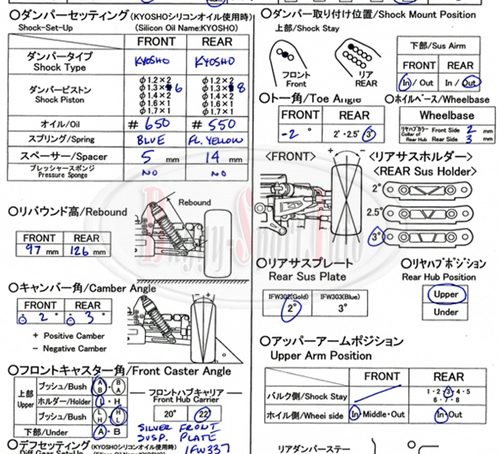 〇ダンパーセッティング(KYOSHOシリコンオイル使用時)
Shock-Set-Up (Silicon Oil Name:KYOSHO)
FRONT REAR
ダンパータイプ
Shock Type KYOSHO KYOSHO
ダンパーピストン
Shock Piston
φ1.2×2 φ1.2×2
φ1.3× 6 φ1.3× 8
φ1.4×2 φ1.4×2
φ1.6×1 φ1.6×1
φ1.7×1 φ1.7×1
オイル/Oil # 650 # 550
スプリング/Spring BLUE FL. YELLOW
スペーサー/Spacer 5 mm 14 mm
プレッシャースポンジ
Pressure Sponge NO NO
〇リバウンド高/Rebound
Rebound
FRONT REAR
97 mm 126 mm
〇キャンバー角/Camber Angle
FRONT REAR
2° 3°
+ Positive Camber
- Negative Camber
〇フロントキャスター角/Front Caster Angle
上部
Upper
ブッシュ/Bush A B · B A
ホルダー/Holder L · H
ブッシュ/Bush L H · H L
下部/Under A · B
フロントハブキャリア
Front Hub Carrier
20° 22
SILVER FRONT
SUSP. PLATE
IFW337
〇デフセッティング(KYOSHOシリコンオイル使用時)
〇ダンパー取り付け位置/Shock Mount Position
上部/Shock Stay
フロント
Front
リア
REAR
下部/Sus Airm
FRONT REAR
In/Out In/Out
〇トー角/Toe Angle
FRONT REAR
-2° 2°·2.5° 3°
〇ホイルベース/Wheelbase
Wheelbase
リヤハブカラー
Collar of
Rear Hub
Front Side 2 mm
Rear Side 3 mm
<FRONT>
<リアサスホルダー>
<REAR Sus Holder>
2°
2.5°
3°
〇リアサスプレート
Rear Sus Plate
IFW302(Gold) IFW303(Blue)
2° 3°
〇リヤハブポジション
Rear Hub Position
Upper
Under
〇アッパーアームポジション
Upper Arm Position
FRONT REAR
バルク側/Shock Stay 1·2·3·4·5
6·7·8
ホイル側/Wheel side In·Middle·Out In·Out
リアダンパーステー